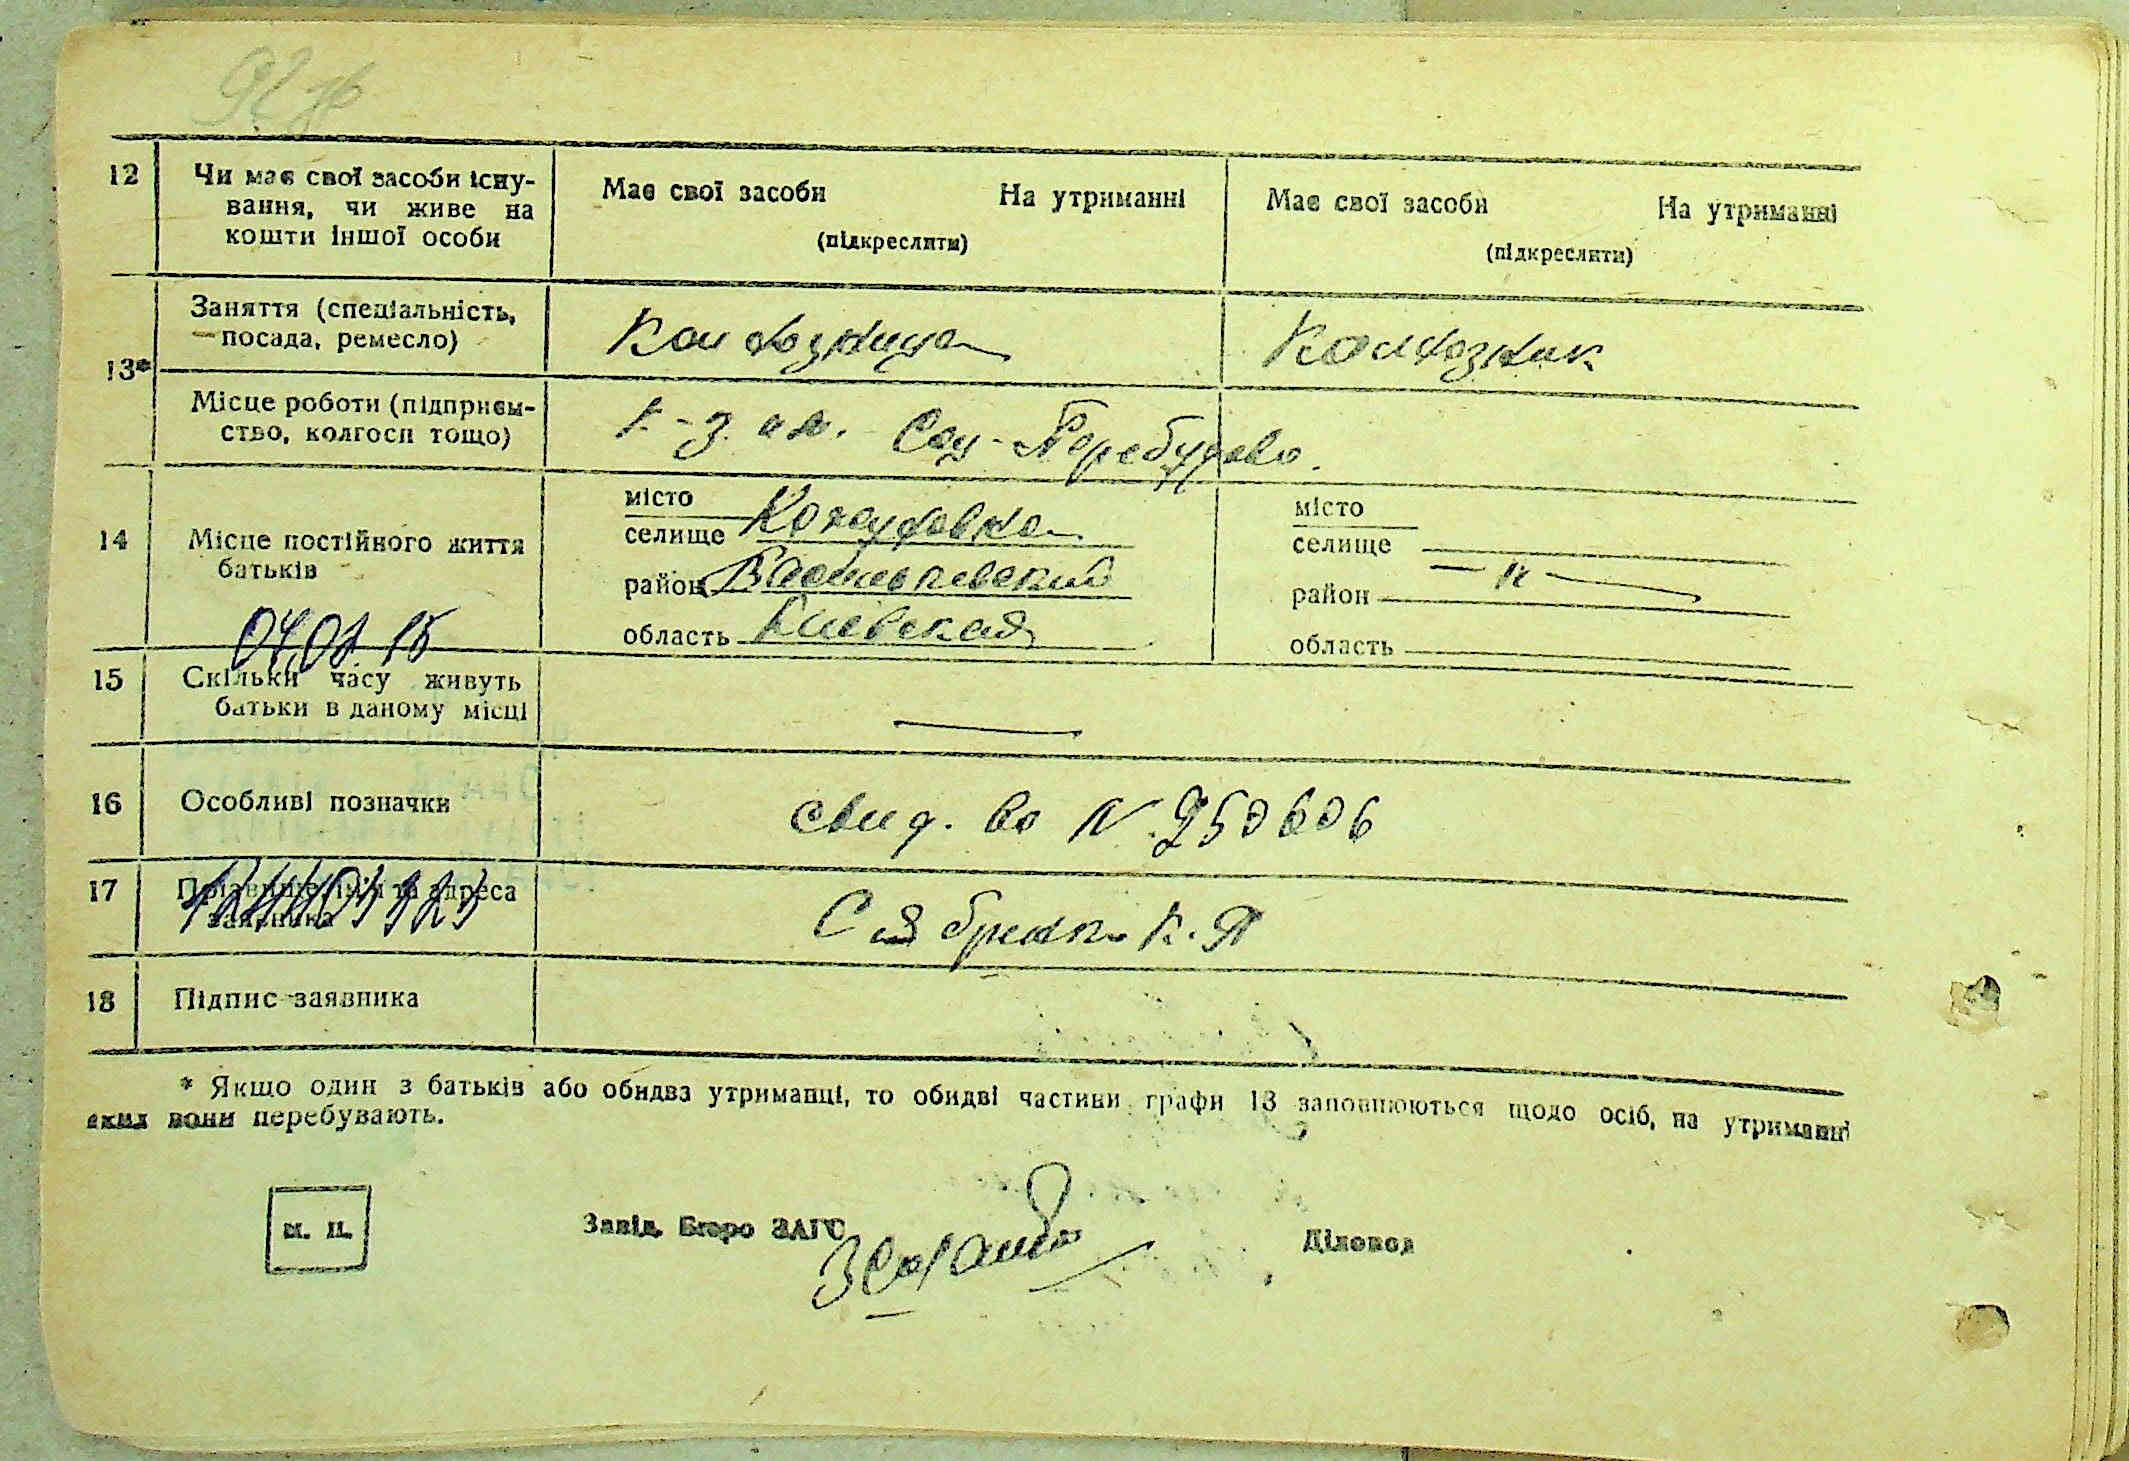 12 Чи має свої засоби існу-
вання, чи живе на
кошти іншої особи
Має свої засоби На утриманні
(підкреслити)
Має свої засоби На утриманні
(підкреслити)
13*
Заняття (спеціальність,
посада, ремесло)
Колхозница
Колхозник
Місце роботи (підприєм-
ство, колгосп тощо)
к-з им. Соц-Перебудова.
14 Місце постійного життя
батьків
місто
селище Кожуховка
район Васильковский
область Киевская
місто
селище
район — " —
область
04,01 15
15 Скільки часу живуть
батьки в даному місці
—
16 Особливі позначки
свид. во N. 250606
17 Прізвище, ім'я та адреса
заявника
К. П
18 Підпис заявника
* Якщо один з батьків або обидва утриманці, то обидві частини графи 13 заповнюються щодо осіб, на утриманні
яких вони перебувають.
М. П.
Завід. Бюро ЗАГС
Діловод